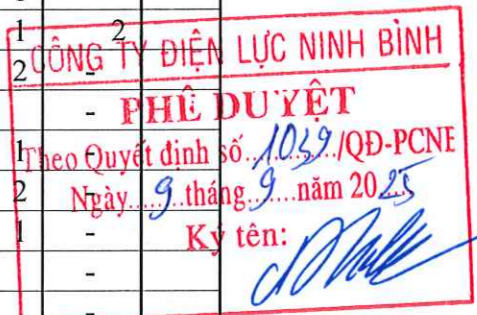 1 2
CÔNG TY ĐIỆN LỰC NINH BÌNH
2 -
- PHÊ DUYỆT
1 - Theo Quyết định số 1039/QĐ-PCNB
2 - Ngày 9 tháng 9 năm 2025
1 - Ký tên:
-
-